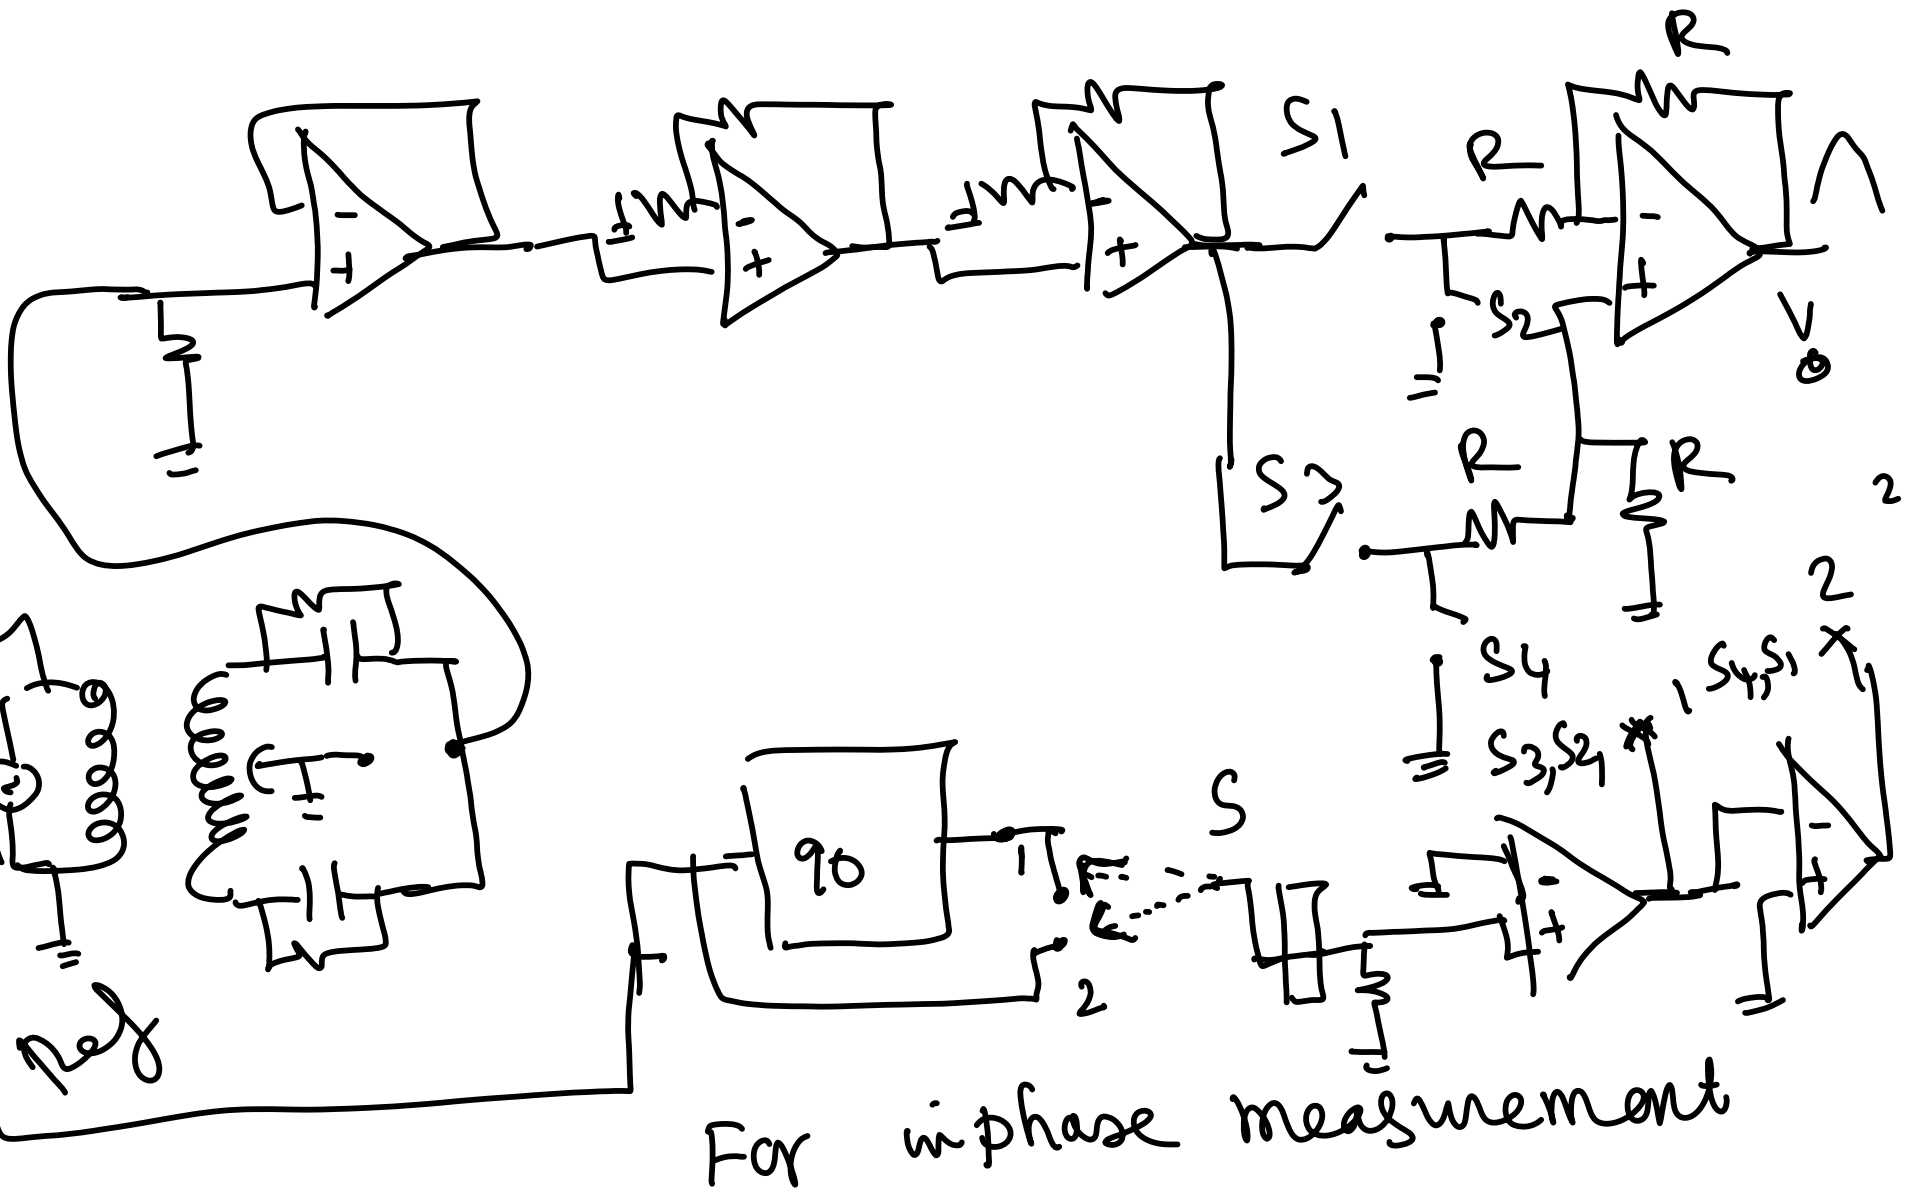 R
S1
R
S2
R
R
S3
2
2
S4
S4, S1
1
S3, S2,
S
90
1
2
Ref
For inphase measurement